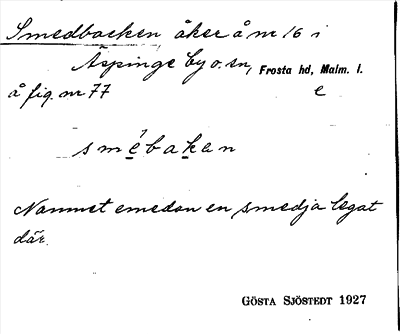 Smedbacken, åker å nr 16 i
Äspinge by o. sn, Frosta hd, Malm. l.
å fig. nr 77 e
smébaken
Namnet emedan en smedja legat
där.
GÖSTA SJÖSTEDT 1927